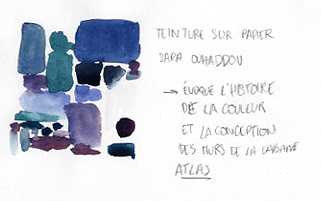 TEINTURE SUR PAPIER
SARA OUHADDOU
→ ÉVOQUE L'HISTOIRE
DE LA COULEUR
ET LA CONCEPTION
DES MURS DE LA CABANE
ATLAS